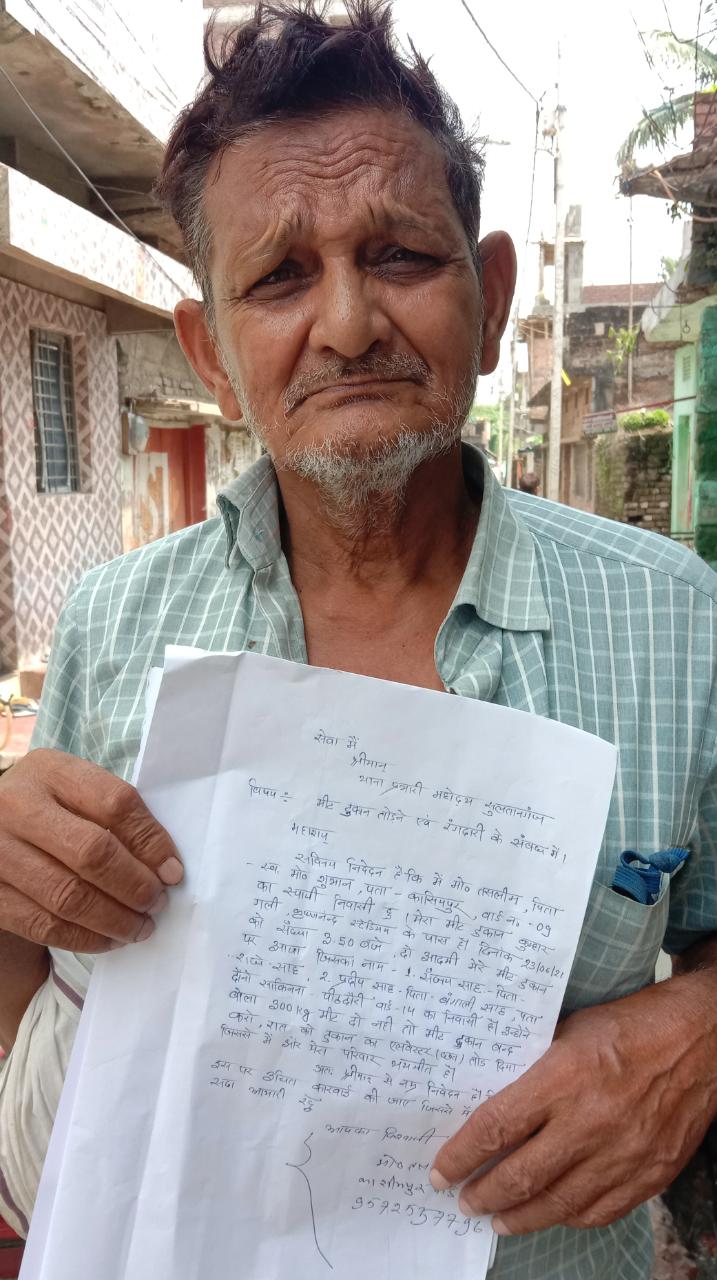 सेवा में
श्रीमान्
थाना प्रभारी महोदय सुलतानगंज
विषय :- मीट दुकान तोडने एवं रंगदारी के संबंध में।
महाशय्
सविनय निवेदन है कि मैं मो० तसलीम, पिता
- स्व. मो० शुभान, पता - कासिमपुर, वार्ड न० - 09
का स्थायी निवासी हु। मेरा मीट दुकान कुम्हार
गली, कृष्णानन्द स्टेडियम के पास है। दिनांक - 23/06/21
को संध्या 3.50 बजे, दो आदमी मेरे मीट दुकान
पर आया जिसका नाम - 1. संजय साह - पिता -
साह - 2. प्रदीप साह - पिता - बंगाली साह, पता
दोनों साकिनना - वार्ड - 14 का निवासी है। उन्होने
बोला 300 kg मीट दो नही तो मीट दुकान बन्द
करो, रात को दुकान का एलवेस्टर (छत) तोड दिया
जिससे मैं और मेरा परिवार भयभीत है।
अतः श्रीमान् से नम्र निवेदन है
इस पर उचित कारवाई की जाए जिससे मैं
सदा आभारी रहु
आपका विश्वासी
मो० तस
काशीमपुर वार्ड
9572537796